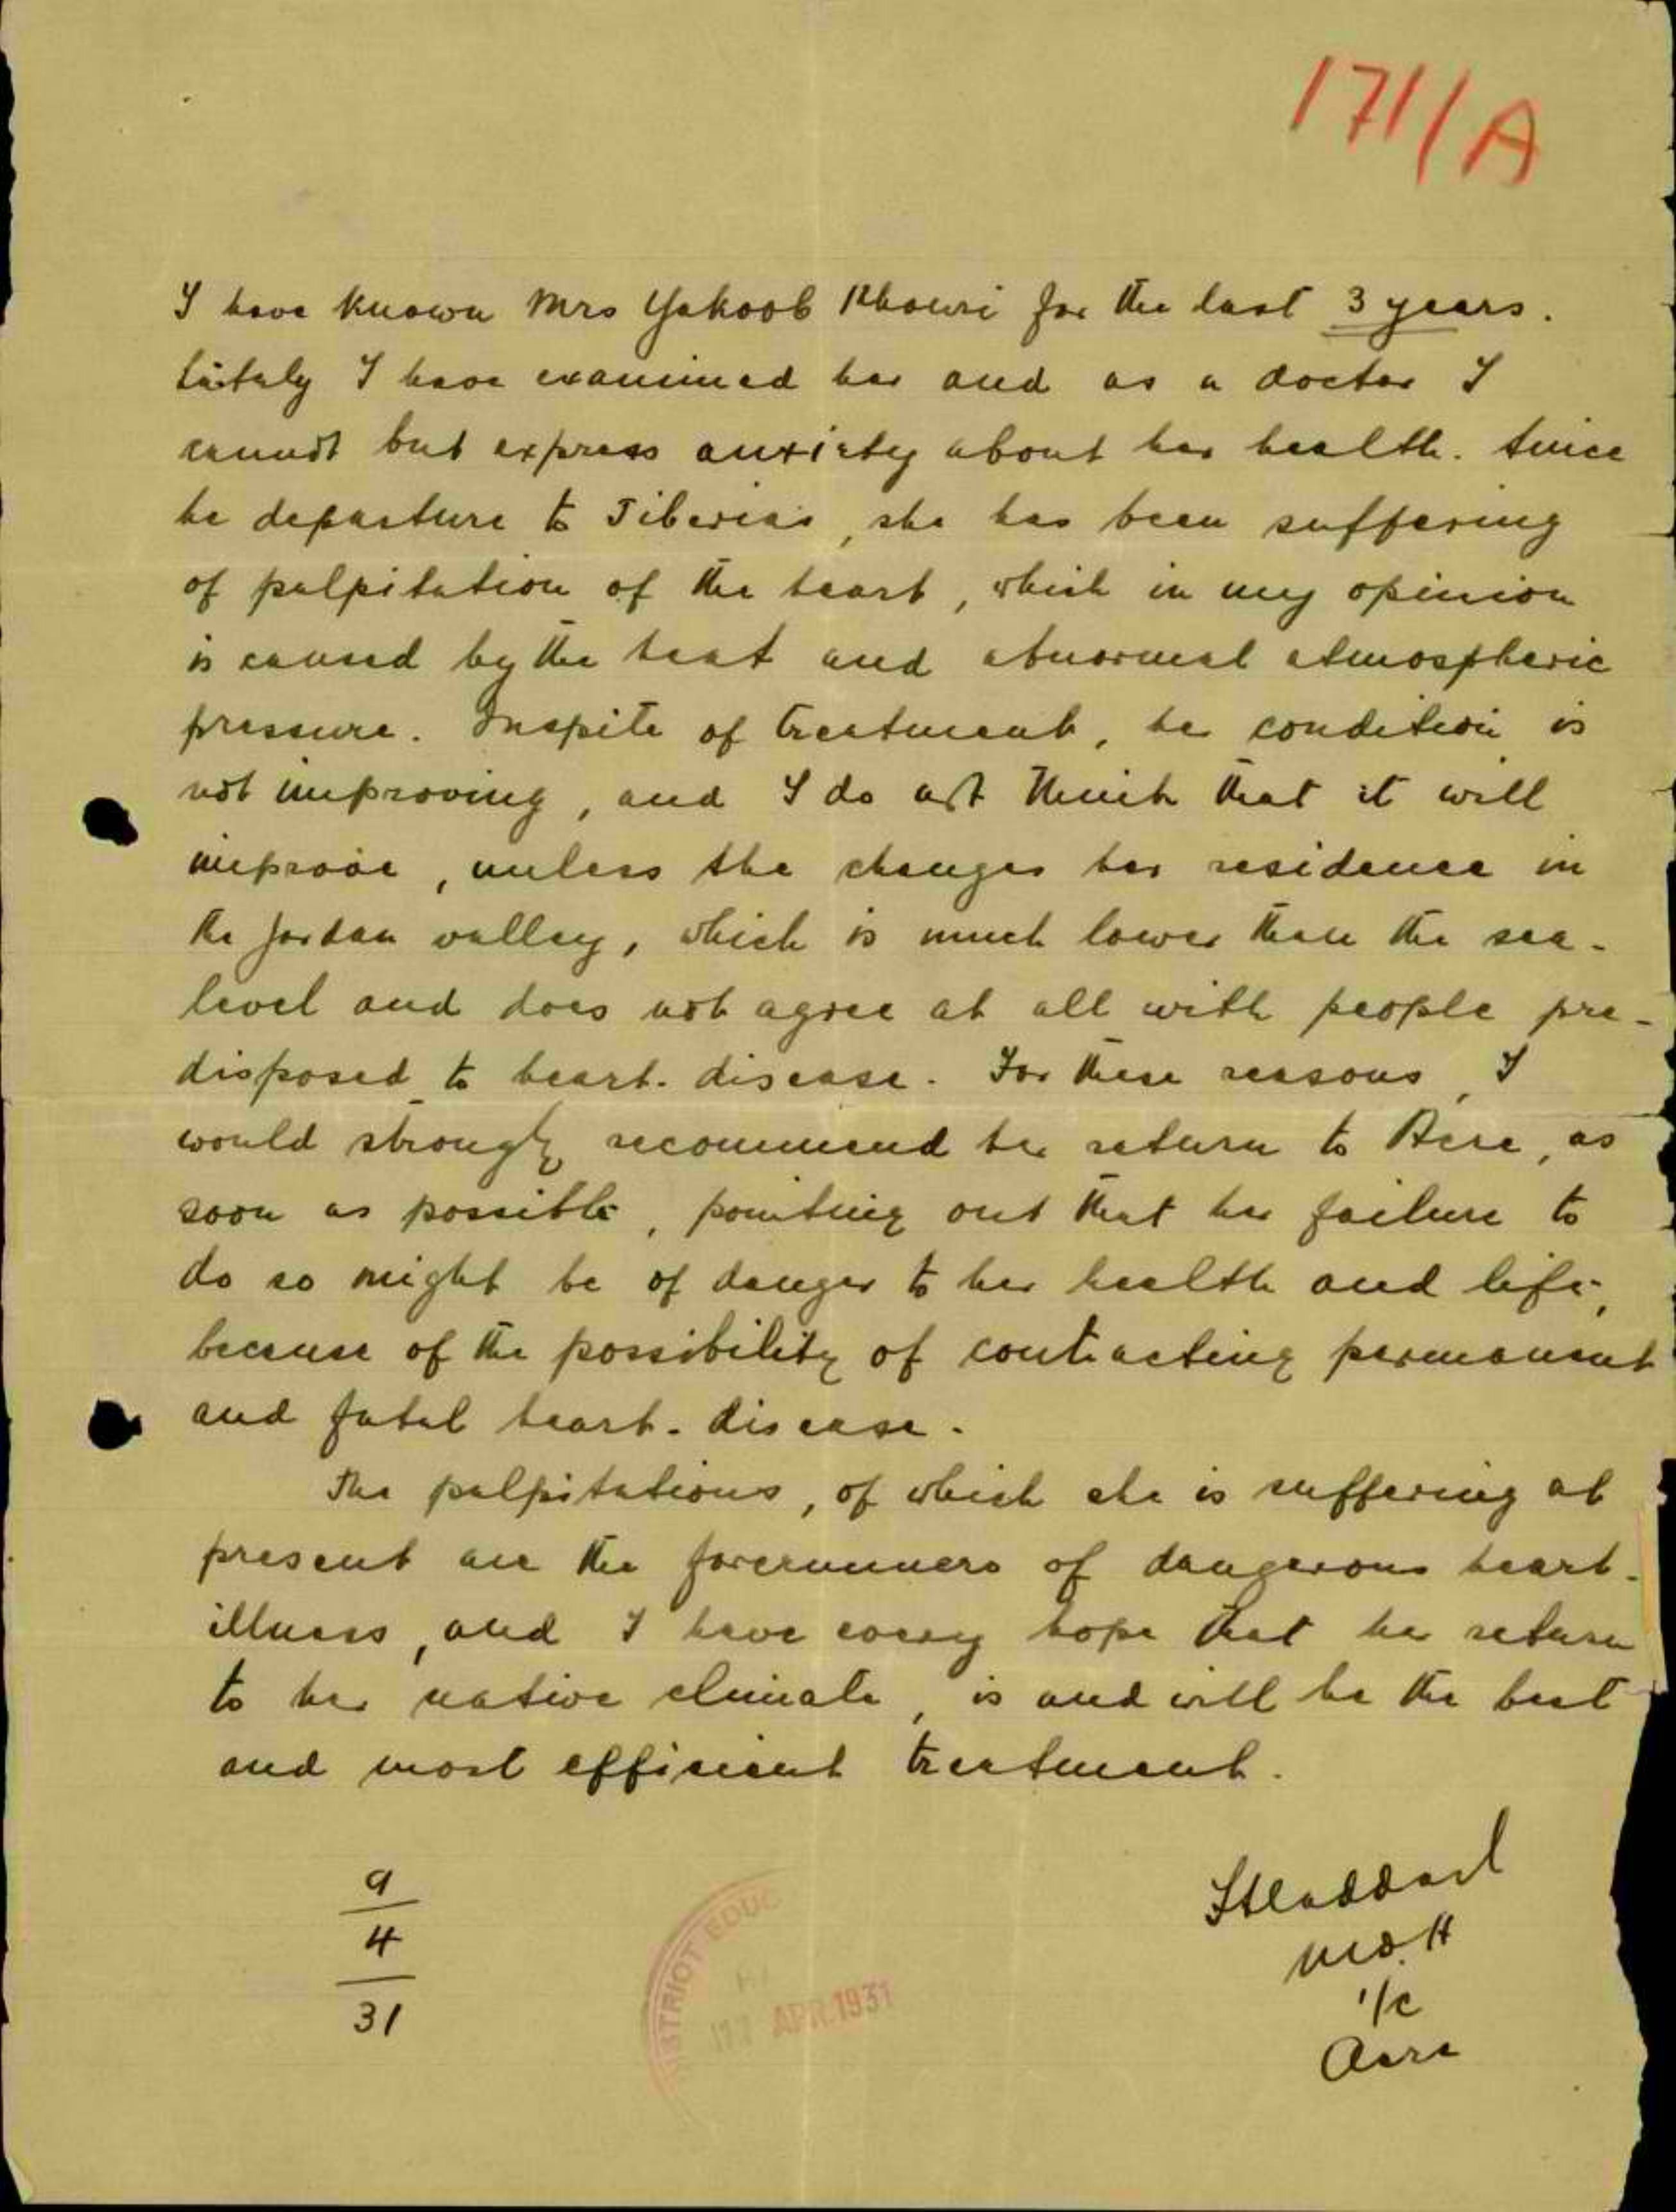 171/A
I have known Mrs Yakoob Khouri for the last 3 years.
Laitaly I have examined her and as a doctor I
cannot but express anxiety about her health. Since
he departure to Tiberias, she has been suffering
of palpitation of the heart, which in my opinion
is caused by the heat and abnormal atmospheric
pressure. Inspite of treatment, her condition is
not improving, and I do not think that it will
improve, unless she changes her residence in
the Jordan valley, which is much lower than the sea-
level and does not agree at all with people pre-
disposed to heart-disease. For these reasons, I
would strongly recommend her return to Acre, as
soon as possible, pointing out that her failure to
do so might be of danger to her health and life,
because of the possibility of contracting permanent
and fatal heart-disease.
The palpitations, of which she is suffering at
present are the forerunners of dangerous heart-
illness, and I have every hope that her return
to her native climate, is and will be the best
and most efficient treatment.
9
4
31
DISTRICT EDUC
APR. 1931
Haddad
M.O.H
i/c
Acre